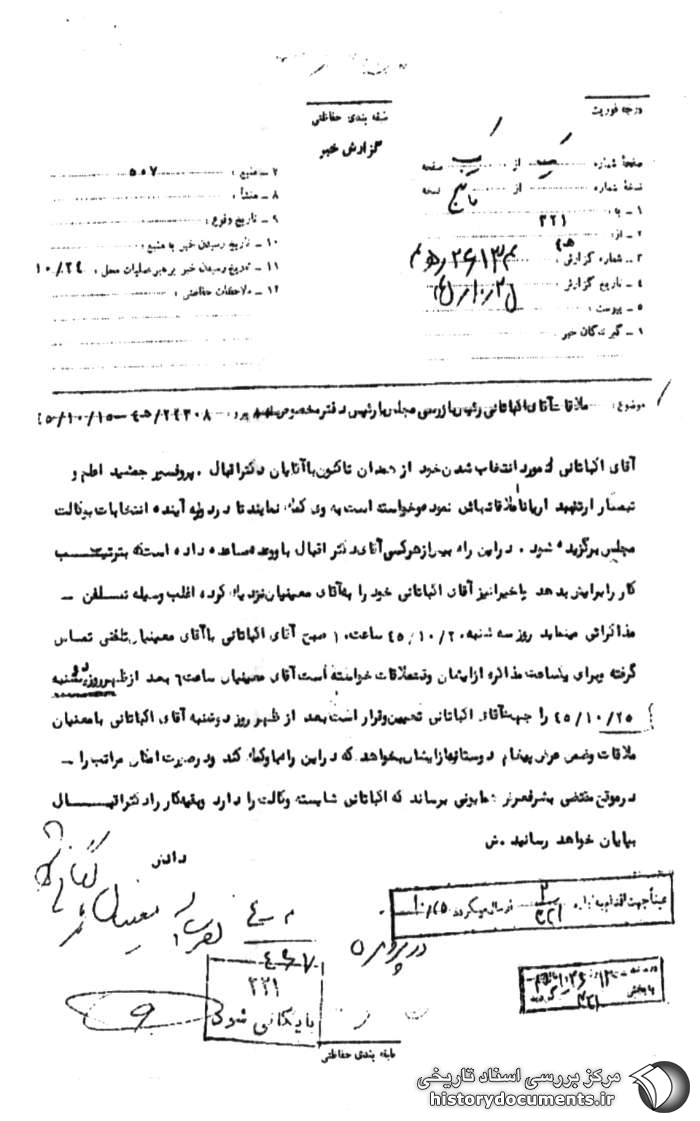 درجه فوریت
طبقه بندی حفاظتی
گزارش خبر
صفحهٔ شماره یک از یک صفحه
نسخهٔ شماره از پنج نسخه
۱ - به : ۳۲۱
۲ - از : ۴ه
۳ - شماره گزارش :
۴ - تاریخ گزارش :
۵ - پیوست :
۶ - گیرندگان خبر
۷ - منبع : ۵۰۷
۸ - منشأ :
۹ - تاریخ وقوع :
۱۰ - تاریخ رسیدن خبر به منبع :
۱۱ - تاریخ رسیدن خبر به رهبر عملیات محل : ۱۰/۲۴
۱۲ - ملاحظات حفاظتی :
موضوع : ملاقات آقای اکباتانی رئیس بازرسی مجلس با رئیس دفتر مخصوص پیرو : ۲۴۳۰۸/ه۴ - ۴۵/۱۰/۱۵
آقای اکباتانی که مورد انتخاب شدن خود از همدان تاکنون با آقایان دکتر اقبال . پروفسور جمشید اعلم و
تیمسار ارتشبد آریانا ملاقاتهائی نموده و خواسته است به وی کمک نمایند تا در دوره آینده انتخابات بوکالت
مجلس برگزیده شود . در این راه بیش از هر کسی آقای دکتر اقبال باو وعده مساعد داده است که بترتیب
کار را برایش بدهد یا اخیرا نیز آقای اکباتانی خود را به آقای معینیان نزدیک کرده اغلب وسیله تلفن -
مذاکراتی مینماید روز سه شنبه ۴۵/۱۰/۲۰ ساعت ۱۰ صبح آقای اکباتانی با آقای معینیان تلفنی تماس
گرفته و برای یکساعت مذاکره از ایشان وقت ملاقات خواسته است آقای معینیان ساعت ۶ بعد از ظهر روز دوشنبه
۴۵/۱۰/۲۵ را جهت آقای اکباتانی تعیین و قرار است بعد از ظهر روز دوشنبه آقای اکباتانی با معینیان
ملاقات و ضمن عرض پیغام دوستانه از ایشان بخواهد که در این راه باو کمک کند و در صورت امکان مراتب را -
در موقع مقتضی بشرفعرض همایونی برساند که اکباتانی شایسته وکالت را دارد و بقیه کار را دکتر اقبال
بپایان خواهد رسانید . ش
دانش
عیناً جهت اقدام به اداره ۳۲۱ ارسال میگردد
در پرونده
۳۲۱
بایگانی شود
طبقه بندی حفاظتی
مرکز بررسی اسناد تاریخی
historydocuments.ir